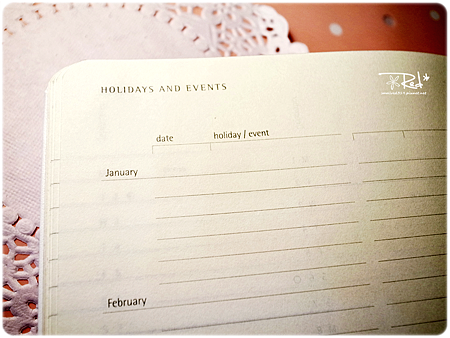 HOLIDAYS AND EVENTS
Red*
date holiday / event
January
February